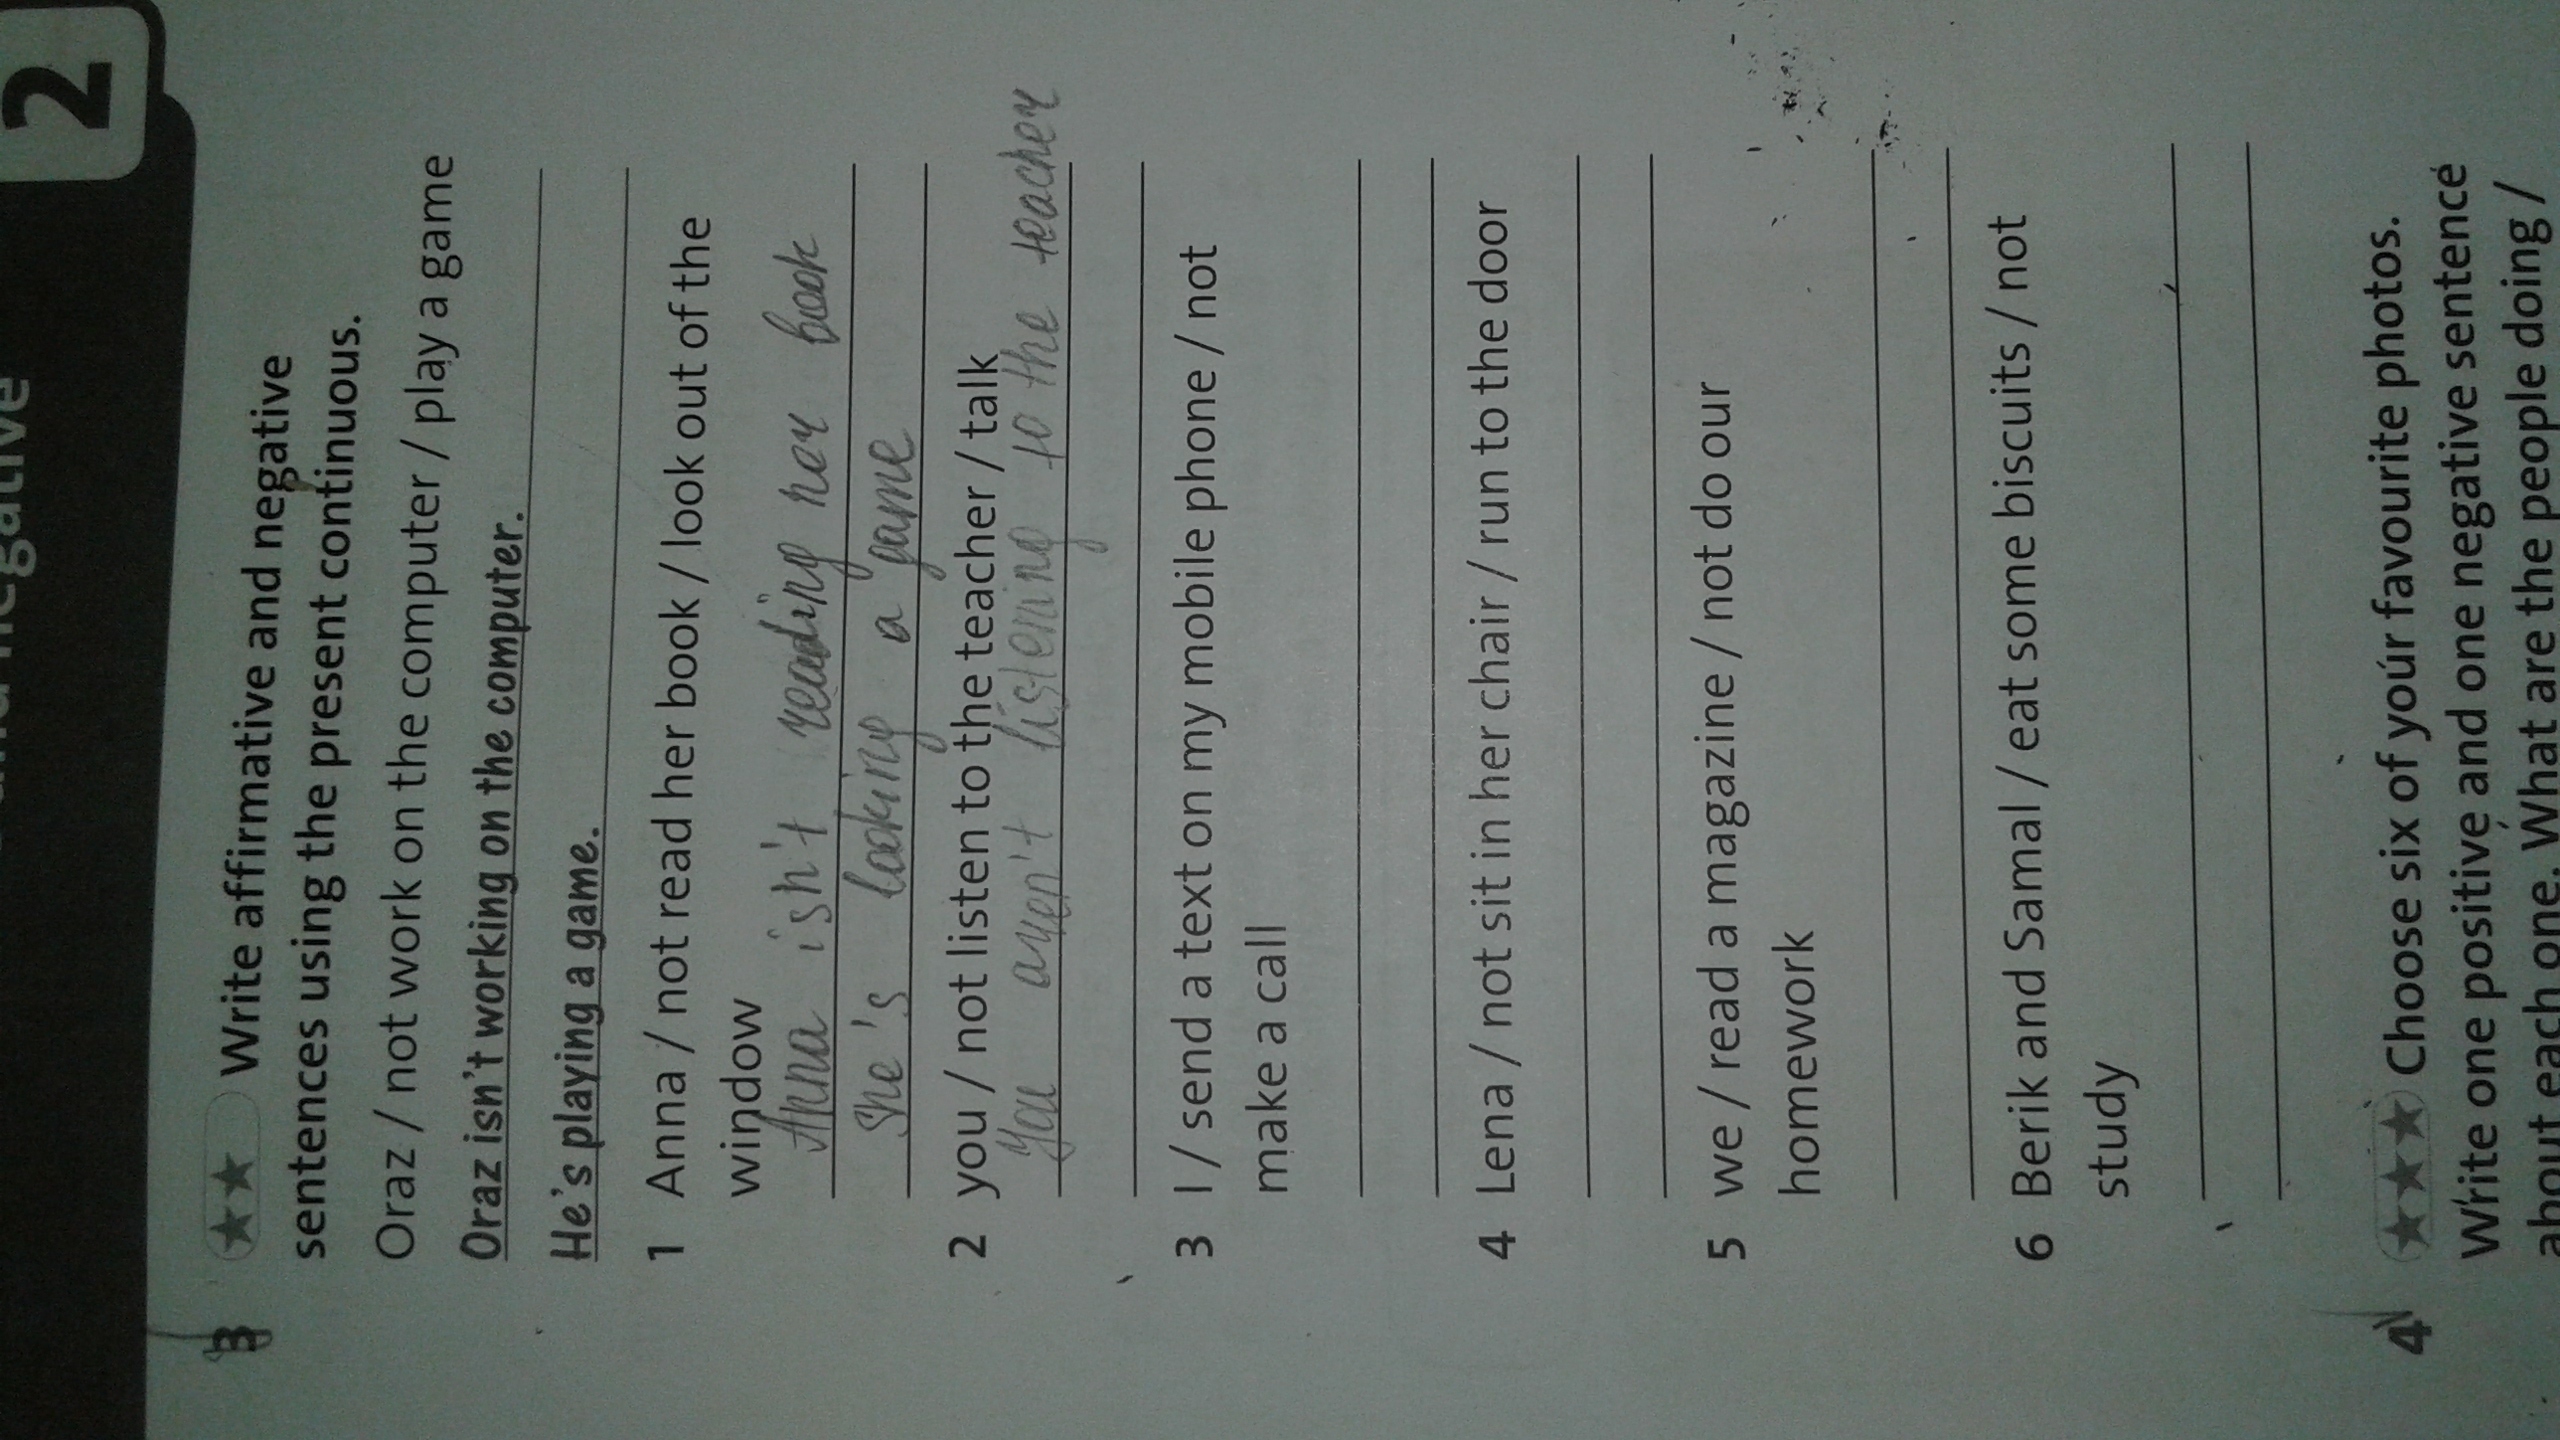 2
negative
3 ★★ Write affirmative and negative
sentences using the present continuous.
Oraz / not work on the computer / play a game
Oraz isn't working on the computer.
He's playing a game.
1 Anna / not read her book / look out of the
window
Anna isn't reading her book
She's looking a game
2 you / not listen to the teacher / talk
You aren't listening to the teacher
3 I / send a text on my mobile phone / not
make a call
4 Lena / not sit in her chair / run to the door
5 we / read a magazine / not do our
homework
6 Berik and Samal / eat some biscuits / not
study
4 ★★★ Choose six of your favourite photos.
Write one positive and one negative sentence
about each one. What are the people doing /